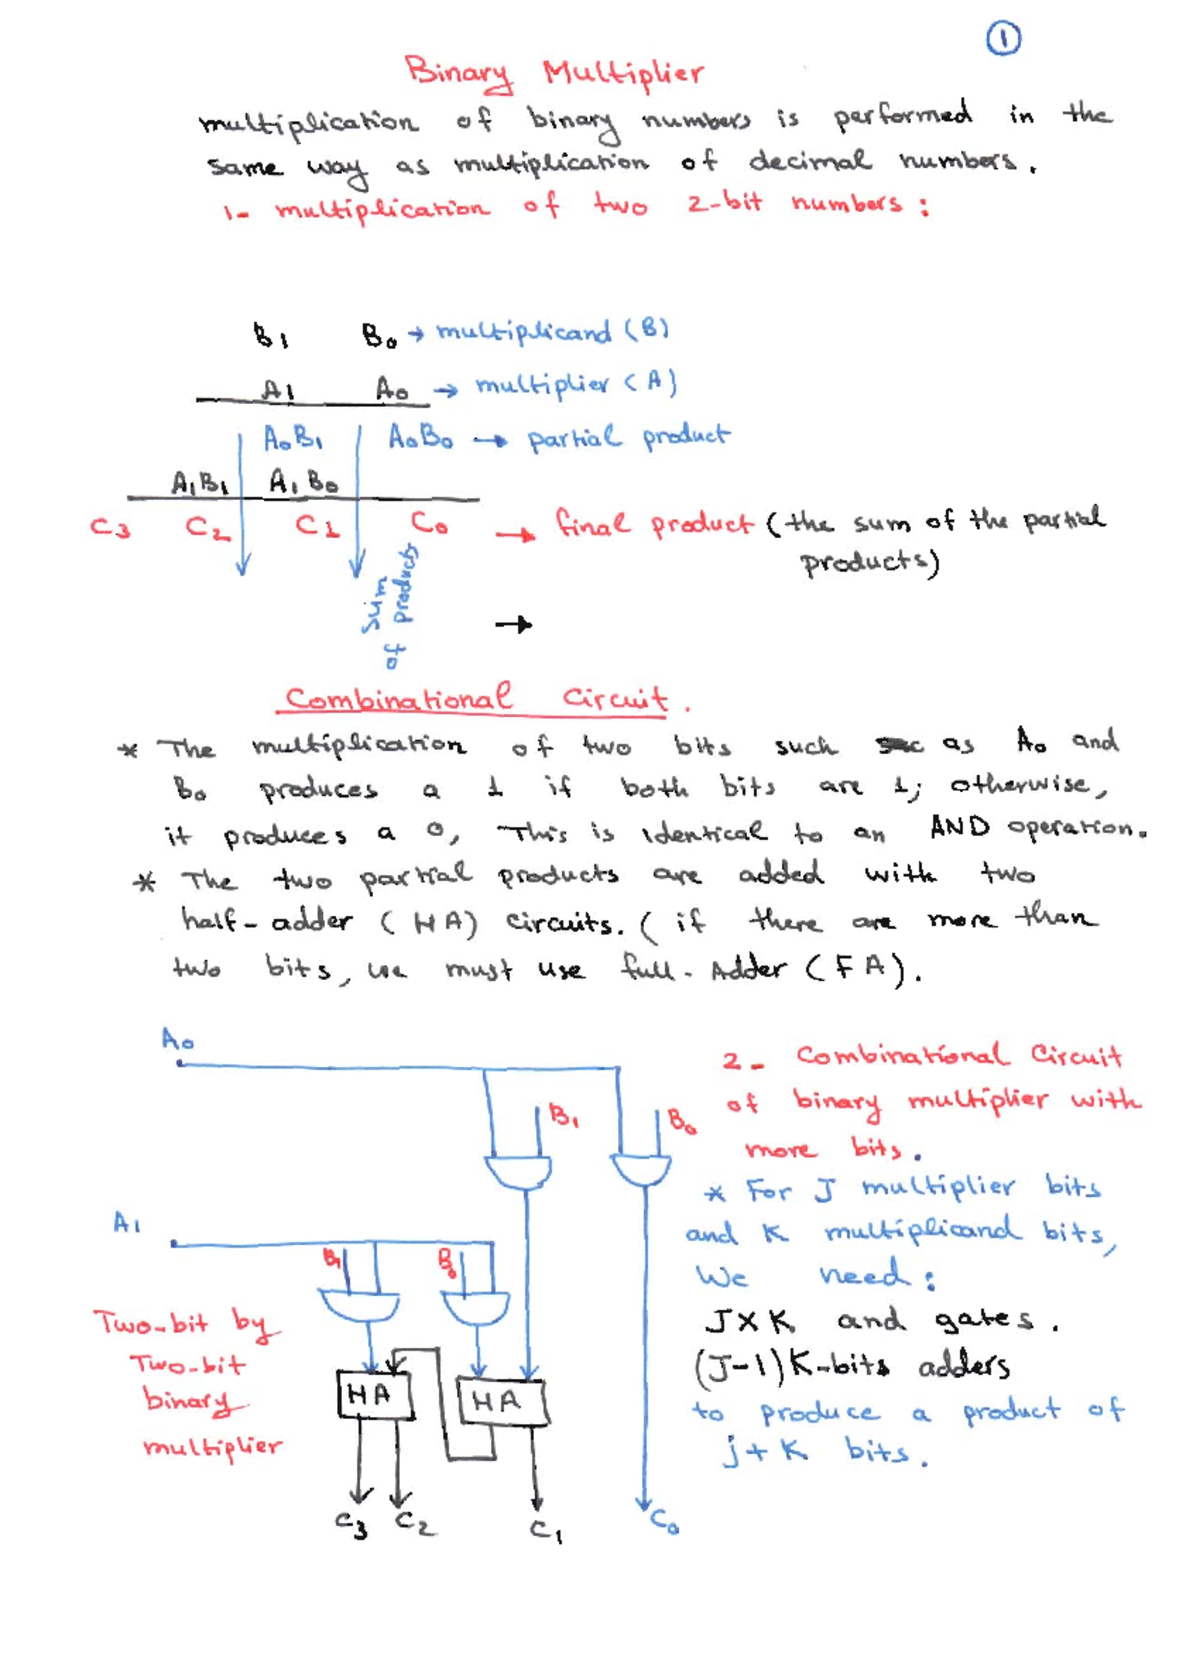 1
Binary Multiplier
multiplication of binary numbers is performed in the
same way as multiplication of decimal numbers.
1- multiplication of two 2-bit numbers:
B1 B0 → multiplicand (B)
A1 A0 → multiplier (A)
A0B1 A0B0 → partial product
A1B1 A1B0
C3 C2 C1 C0 → final product (the sum of the partial
products)
Sum
of products
→
Combinational Circuit.
* The multiplication of two bits such as A0 and
B0 produces a 1 if both bits are 1; otherwise,
it produces a 0, This is identical to an AND operation.
* The two partial products are added with two
half-adder (HA) circuits. (if there are more than
two bits, we must use full-Adder (FA).
A0
B1 B0
A1
B1 B0
HA HA
C3 C2 C1 C0
Two-bit by
Two-bit
binary
multiplier
2- Combinational Circuit
of binary multiplier with
more bits.
* For J multiplier bits
and K multiplicand bits,
We need:
J×K and gates.
(J-1)K-bits adders
to produce a product of
j+K bits.